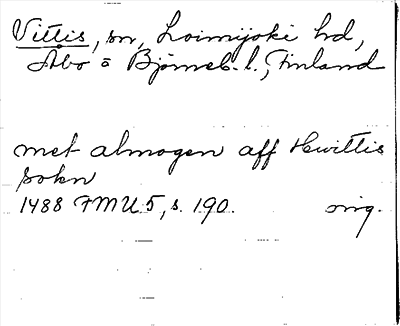 Vittis, sn, Loimijoki hd,
Åbo o Björneb. l., Finland
met almogen aff Hwittis
sokn
1488 FMU 5, s. 190. orig.